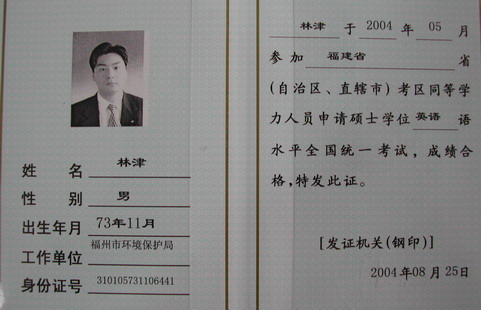 姓 名 林津
性 别 男
出生年月 73年11月
工作单位 福州市环境保护局
身份证号 310105731106441
林津 于 2004 年 05 月
参加 福建省 省
(自治区、直辖市) 考区同等学
力人员申请硕士学位 英语 语
水平全国统一考试，成绩合
格，特发此证。
[发证机关(钢印)]
2004 年 08 月 25 日